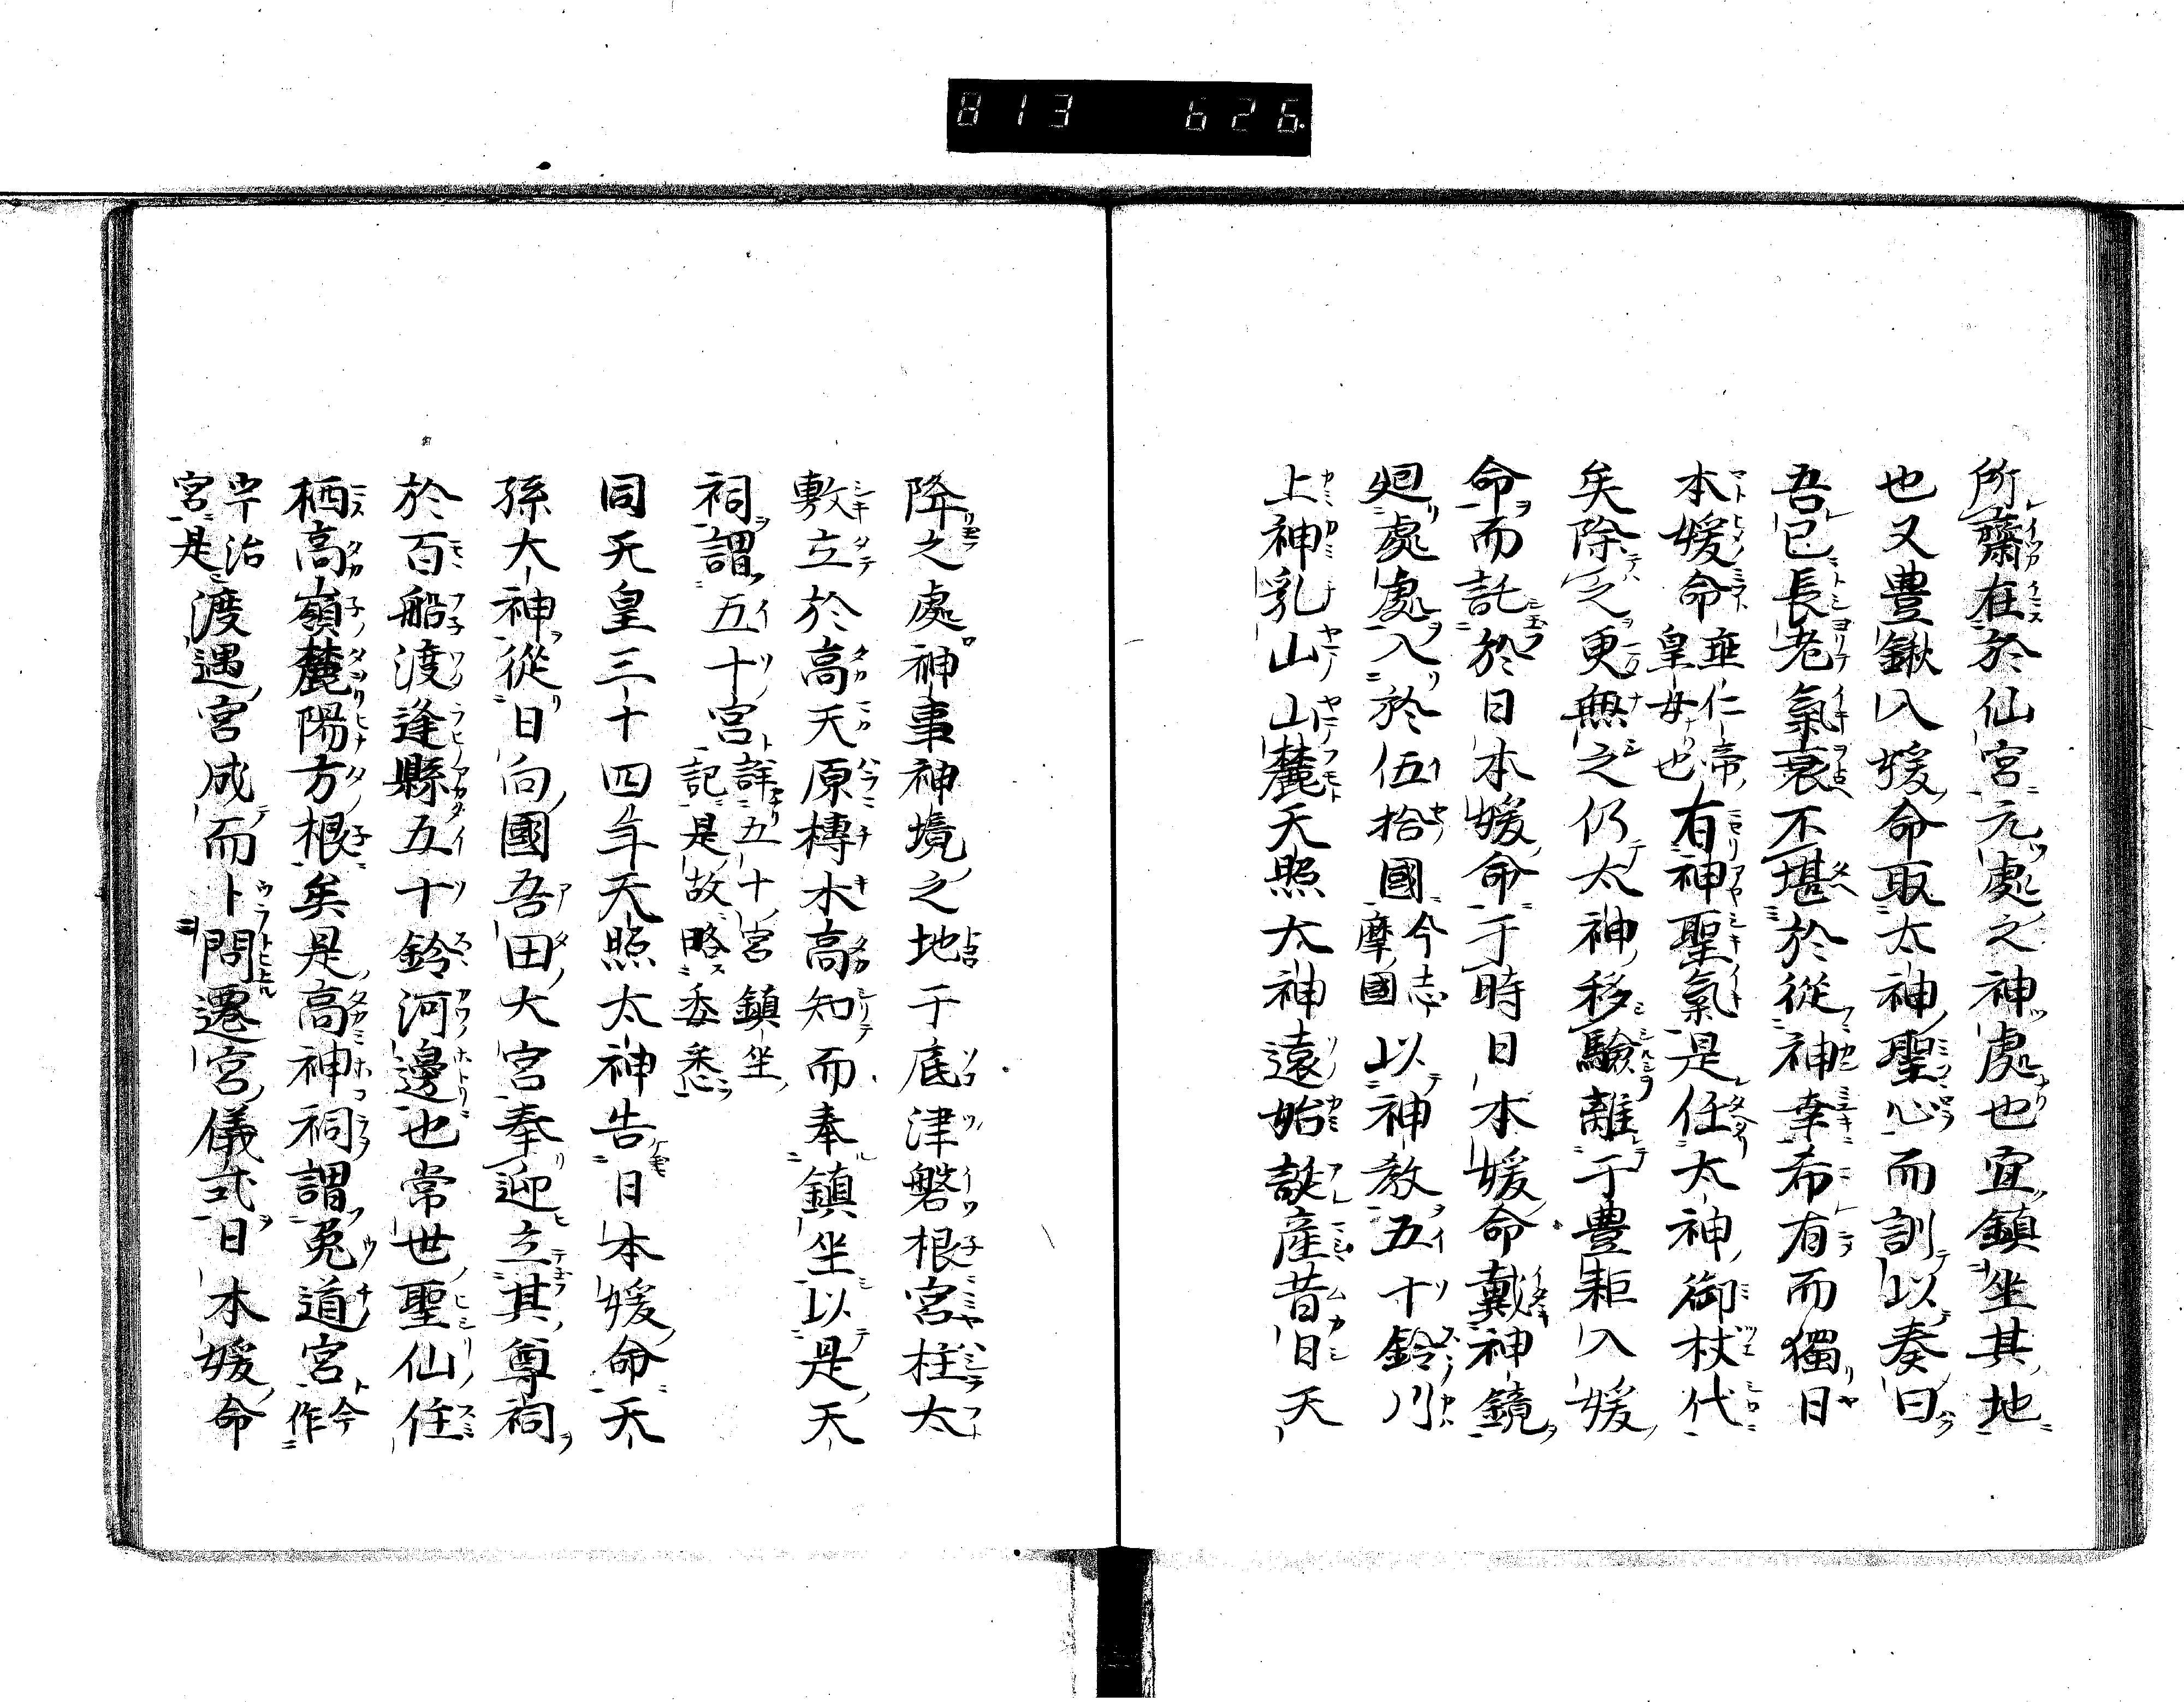 813 626.
所齋在於仙宮元處之神處也宜鎮坐其地
也又豊鍬入媛命取太神聖心而訓以奏曰
吾已長老氣衰不堪於從神幸希有而獨日
本媛命垂仁帝皇女也有神聖氣是任太神御杖代
矣除之更無之仍太神移驗離于豊耟入媛
命而託於日本媛命于時日本媛命戴神鏡
廻處處入於伍拾國今志摩國以神教五十鈴川
上神乳山山麓天照太神遠始誕產昔日天
降之處神事神境之地于底津磐根宮柱太
敷立於高天原槫木高知而奉鎮坐以是天
祠謂五十宮詳五十宮鎮坐記是故略委悉
同天皇三十四年天照太神告日本媛命天
孫大神從日向國吾田大宮奉迎立其尊祠
於百船渡逢縣五十鈴河邊也常世聖仙住
栖高嶺麓陽方根矣是高神祠謂兎道宮今作
宇治宮是渡遇宮成而卜問遷宮儀式日本媛命